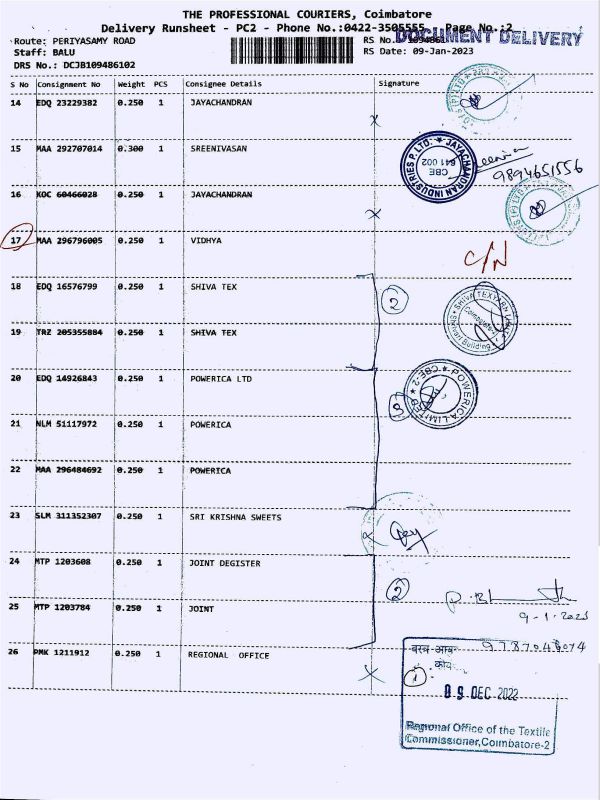 THE PROFESSIONAL COURIERS, Coimbatore
Delivery Runsheet - PC2 - Phone No.:0422-3505555 Page No.:2
DOCUMENT DELIVERY
Route: PERIYASAMY ROAD
RS No.:
Staff: BALU
RS Date: 09-Jan-2023
DRS No.: DCJB109486102
S No Consignment No Weight PCS Consignee Details Signature
14 EDQ 23229382 0.250 1 JAYACHANDRAN
15 MAA 292707014 0.300 1 SREENIVASAN
JAYACHANDRAN INDUSTRIES P.LTD. CBE 641 002
9894651556
16 KOC 60466028 0.250 1 JAYACHANDRAN
17 MAA 296796005 0.250 1 VIDHYA
C/N
18 EDQ 16576799 0.250 1 SHIVA TEX
2
19 TRZ 205355884 0.250 1 SHIVA TEX
20 EDQ 14926843 0.250 1 POWERICA LTD
3
POWERICA LIMITED CBE-2
21 NLM 51117972 0.250 1 POWERICA
22 MAA 296484692 0.250 1 POWERICA
23 SLM 311352307 0.250 1 SRI KRISHNA SWEETS
24 MTP 1203608 0.250 1 JOINT DEGISTER
2
25 MTP 1203784 0.250 1 JOINT
9-1-2023
26 PMK 1211912 0.250 1 REGIONAL OFFICE
1
09 DEC 2022
Regional Office of the Textile
Commissioner,Coimbatore-2